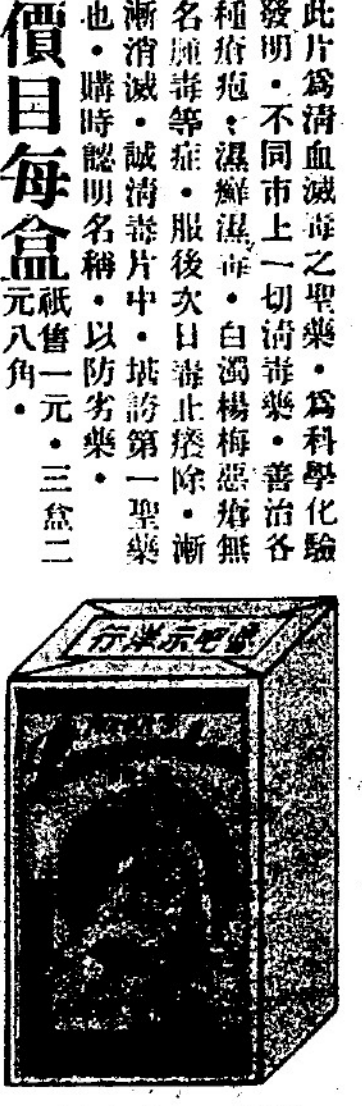 此片爲淸血滅毒之聖藥・爲科學化驗
發明・不同市上一切淸毒藥・善治各
種瘡疤・濕癬濕毒・白濁楊梅惡瘡無
名腫毒等症・服後次日毒止痿除・漸
漸消滅・誠淸毒片中・堪誇第一聖藥
也・購時認明名稱・以防劣藥・
價目每盒
祇售一元・三盒二
元八角・
行藥示吧